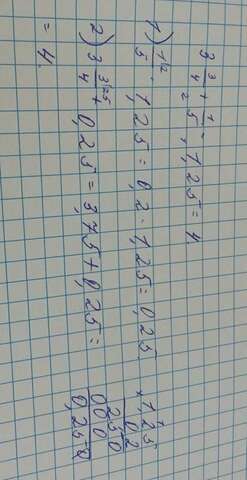 3 3/4 + 1/5 · 1,25 = 4
2 1
1) 1/5 \2 · 1,25 = 0,2 · 1,25 = 0,25.
2) 3 3/4 \25 + 0,25 = 3,75 + 0,25 =
= 4.
× 1,25
0,2
250
000
0,250